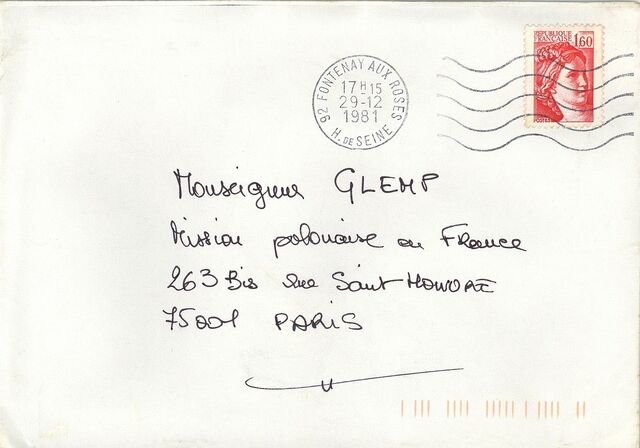 REPUBLIQUE
FRANÇAISE 1,60
POSTES
92 FONTENAY AUX ROSES
17H15
29-12
1981
H. DE SEINE
Monseigneur GLEMP
Mission polonaise en France
263 Bis rue Saint-HONORÉ
75001 PARIS